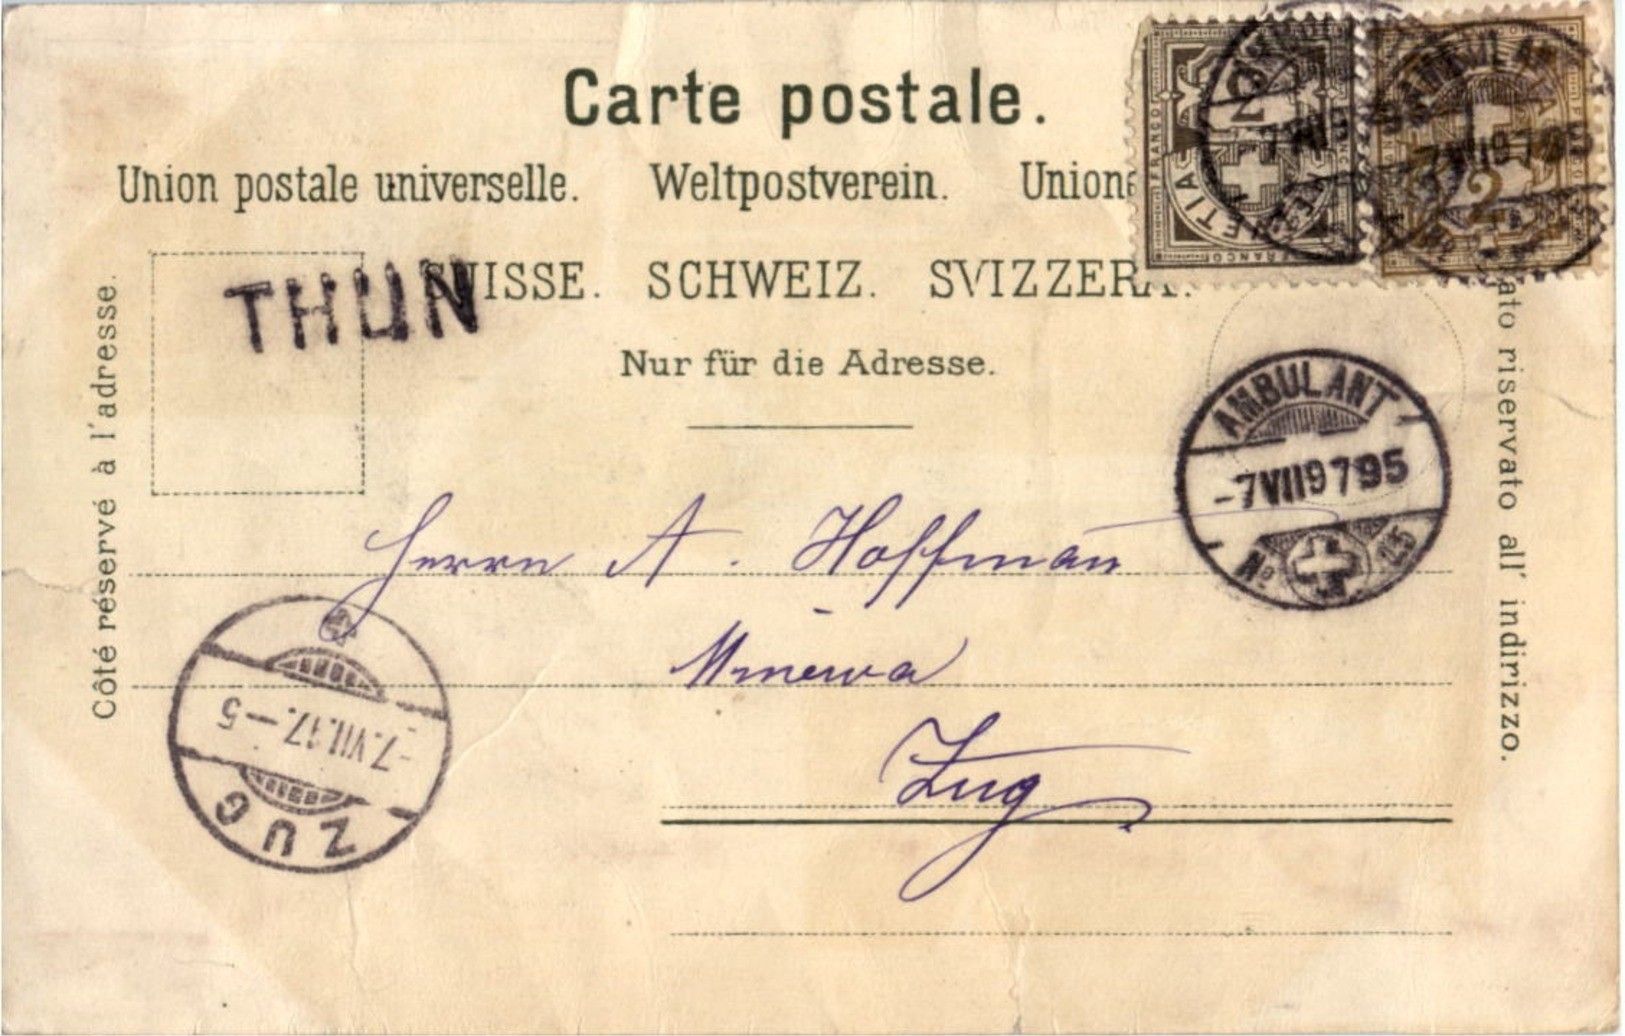 Carte postale.
Union postale universelle. Weltpostverein.
SUISSE. SCHWEIZ. SVIZZERA.
THUN
Nur für die Adresse.
Côté réservé à l'adresse.
riservato all' indirizzo.
2
2
FRANCO
AMBULANT
-7 VII 97 95
No 15
Herrn A. Hoffman
Minerva
Zug
-7.VII.97.-5
ZUG